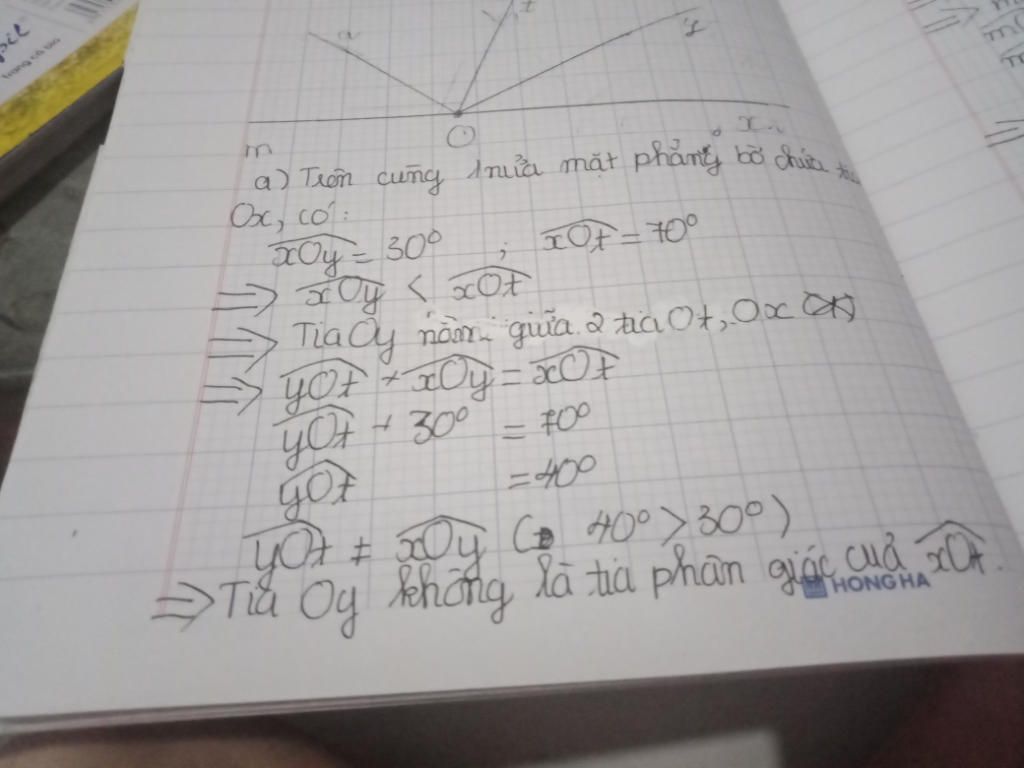 pil
trang có ba
a
t
y
x
O
m
a) Trên cùng 1 nửa mặt phẳng bờ chứa tia
Ox, có:
xOy = 30° ; xOt = 70°
=> xOy < xOt
=> Tia Oy nằm giữa 2 tia Ot, Ox
=> yOt + xOy = xOt
yOt + 30° = 70°
yOt = 40°
yOt ≠ xOy ( 40° > 30° )
=> Tia Oy không là tia phân giác cuả xOt.
HONG HA